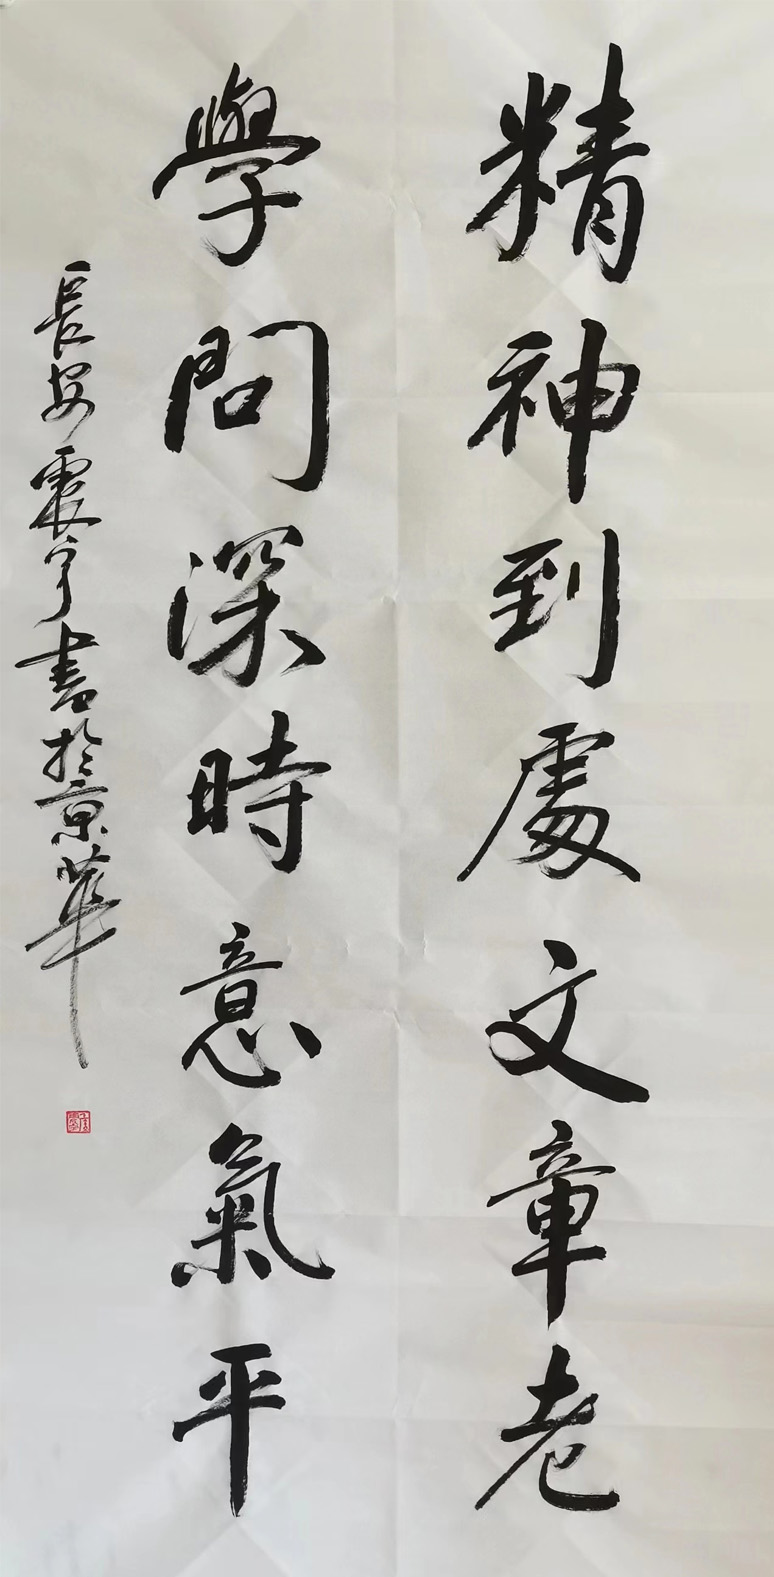 精神到處文章老
學問深時意氣平
長安震宇書於京華